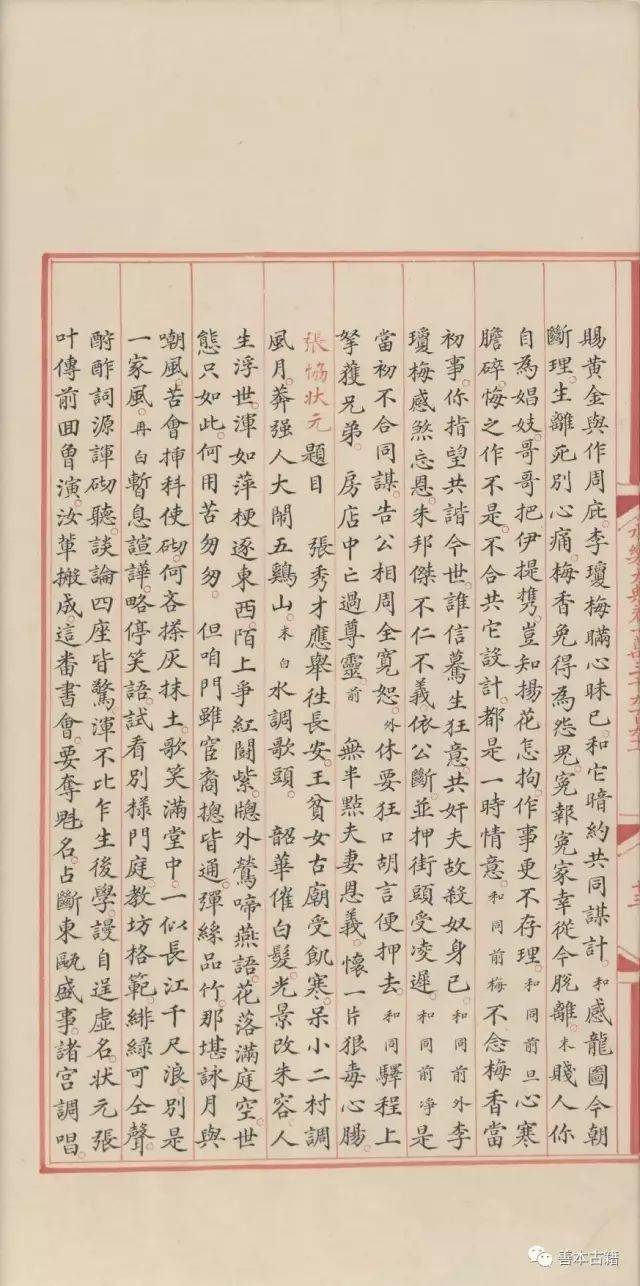 賜黃金與作周庇。李瓊梅瞞心昧已。和它暗約共同謀計。和感龍圖今朝
斷理。生離死别心痛。梅香免得為怨鬼。寃報寃家幸從今脫離。末賤人你
自為娼妓。哥哥把伊提携。豈知揚花怎拘。作事更不存理。和同前旦心寒
膽碎。悔之作不是。不合共它設計。都是一時情意。和同前梅不念梅香當
初事。你指望共諧今世。誰信驀生狂意。共奸夫故殺奴身已。和同前外李
瓊梅感煞忘恩。朱邦傑不仁不義。依公斷。並押街頭受凌遲。和同前淨是
當初不合同謀。告公相周全寬恕。外休要狂口胡言便押去。和同驛程上
拏獲兄弟。房店中亡過尊靈。前無半點夫妻恩義。懷一片狠毒心腸。
張恊狀元題目 張秀才應舉徃長安。王貧女古廟受飢寒。呆小二村調
風月。莽强人大鬧五鷄山。末白水調歌頭。韶華催白髮。光景改朱容。人
生浮世。渾如萍梗逐東西。陌上爭紅鬬紫。牕外鶯啼燕語。花落滿庭空。世
態只如此。何用苦匆匆。但咱門雖宦裔。揔皆通。彈絲品竹。那堪詠月與
嘲風。苦會揷科使砌。何吝搽灰抹土。歌笑滿堂中。一似長江千尺浪。别是
一家風。再白暫息諠譁。略停笑語。試看别樣門庭。教坊格範。緋綠可仝聲。
酧酢詞源諢砌聽。談論四座皆驚。渾不比乍生後學。謾自逞虛名。狀元張
叶傳。前囬曽演。汝輩搬成。這番書會。要奪魁名。占斷東甌盛事。諸宮調唱
十三
善本古籍